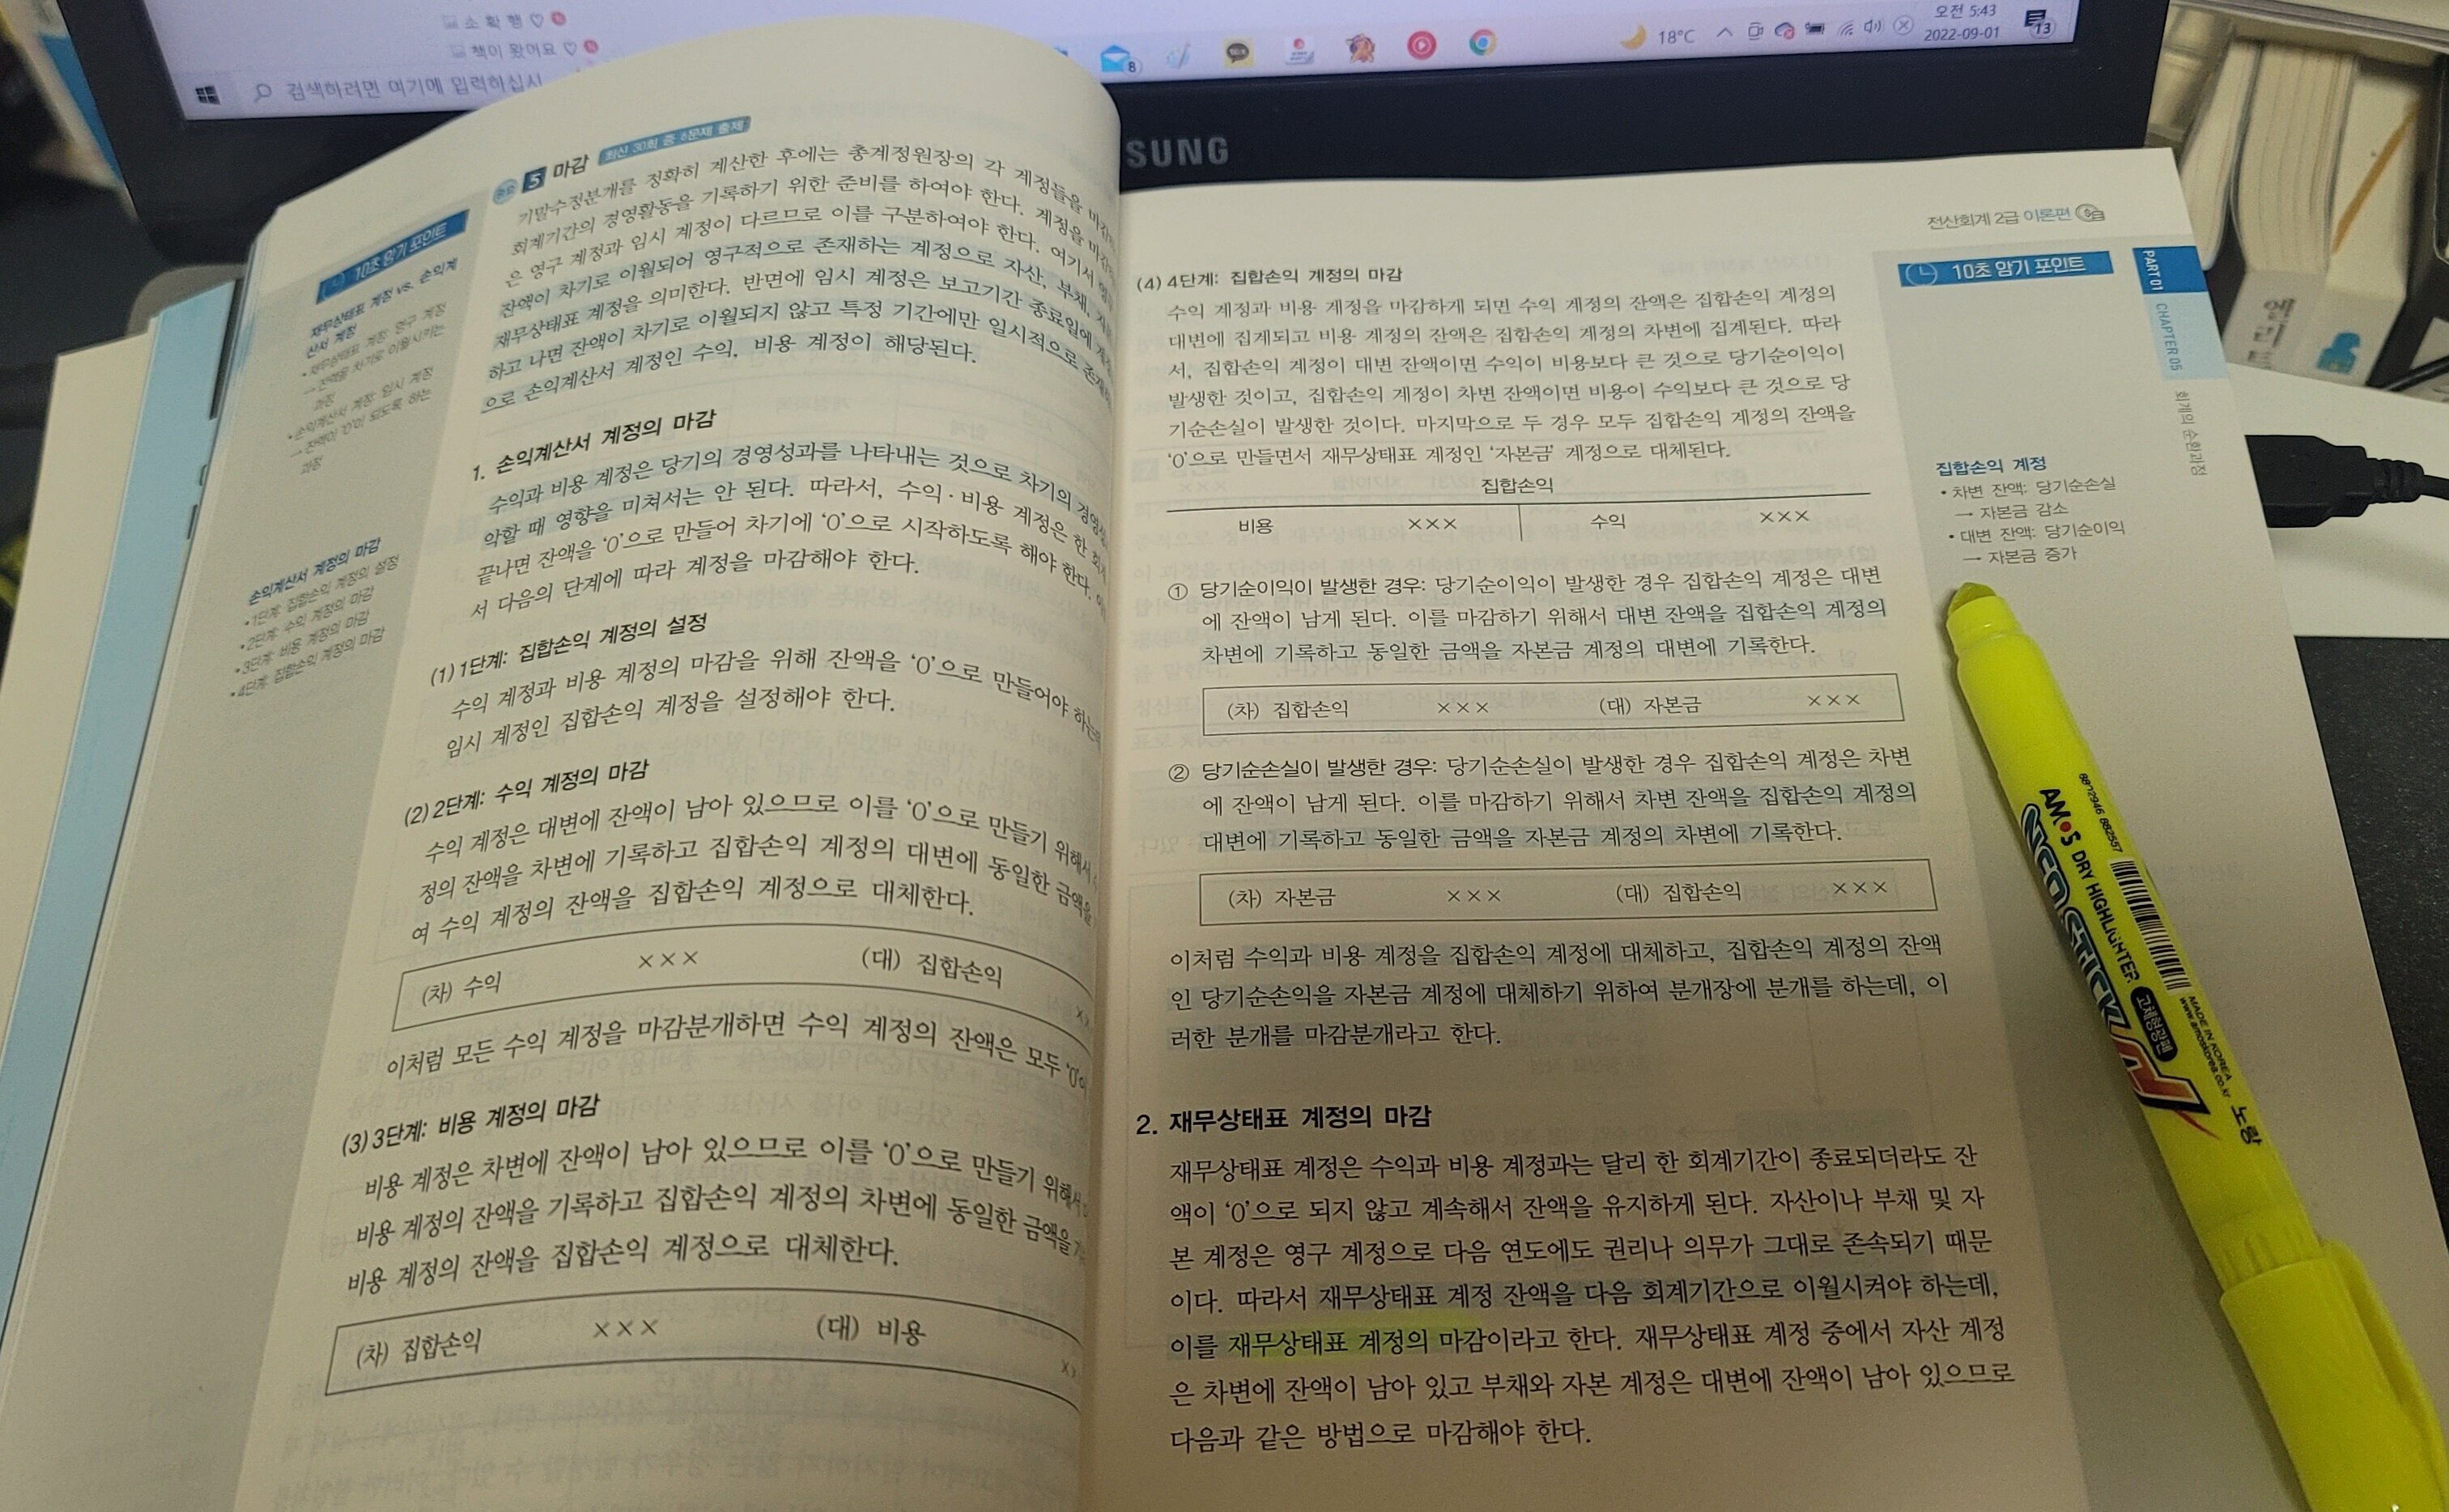 소 확 행 ♡
책이 왔어요 ♡
검색하려면 여기에 입력하십시
8
18°C
오전 5:43
2022-09-01
13
SUNG
중요 5 마감 최신 30회 중 6문제 출제
기말수정분개를 정확히 계산한 후에는 총계정원장의 각 계정들을
회계기간의 경영활동을 기록하기 위한 준비를 하여야 한다. 계정을
은 영구 계정과 임시 계정이 다르므로 이를 구분하여야 한다. 여기서
잔액이 차기로 이월되어 영구적으로 존재하는 계정으로 자산, 부채,
재무상태표 계정을 의미한다. 반면에 임시 계정은 보고기간 종료일에
하고 나면 잔액이 차기로 이월되지 않고 특정 기간에만 일시적으로
으로 손익계산서 계정인 수익, 비용 계정이 해당된다.
10초 암기 포인트
재무상태표 계정 vs. 손익계
산서 계정
• 재무상태표 계정: 영구 계정
→ 잔액을 차기로 이월시키는
과정
• 손익계산서 계정: 임시 계정
→ 잔액이 '0'이 되도록 하는
과정
1. 손익계산서 계정의 마감
수익과 비용 계정은 당기의 경영성과를 나타내는 것으로 차기의
악할 때 영향을 미쳐서는 안 된다. 따라서, 수익·비용 계정은 한
끝나면 잔액을 '0'으로 만들어 차기에 '0'으로 시작하도록 해야 한다.
서 다음의 단계에 따라 계정을 마감해야 한다.
손익계산서 계정의 마감
• 1단계: 집합손익 계정의 설정
• 2단계: 수익 계정의 마감
• 3단계: 비용 계정의 마감
• 4단계: 집합손익 계정의 마감
(1) 1단계: 집합손익 계정의 설정
수익 계정과 비용 계정의 마감을 위해 잔액을 '0'으로 만들어야
임시 계정인 집합손익 계정을 설정해야 한다.
(2) 2단계: 수익 계정의 마감
수익 계정은 대변에 잔액이 남아 있으므로 이를 '0'으로 만들기 위해서
정의 잔액을 차변에 기록하고 집합손익 계정의 대변에 동일한 금액을
여 수익 계정의 잔액을 집합손익 계정으로 대체한다.
(차) 수익 ××× (대) 집합손익
이처럼 모든 수익 계정을 마감분개하면 수익 계정의 잔액은 모두 '0'이
(3) 3단계: 비용 계정의 마감
비용 계정은 차변에 잔액이 남아 있으므로 이를 '0'으로 만들기 위해서
비용 계정의 잔액을 기록하고 집합손익 계정의 차변에 동일한 금액을
비용 계정의 잔액을 집합손익 계정으로 대체한다.
(차) 집합손익 ××× (대) 비용
전산회계 2급 이론편
(4) 4단계: 집합손익 계정의 마감
수익 계정과 비용 계정을 마감하게 되면 수익 계정의 잔액은 집합손익 계정의
대변에 집계되고 비용 계정의 잔액은 집합손익 계정의 차변에 집계된다. 따라
서, 집합손익 계정이 대변 잔액이면 수익이 비용보다 큰 것으로 당기순이익이
발생한 것이고, 집합손익 계정이 차변 잔액이면 비용이 수익보다 큰 것으로 당
기순손실이 발생한 것이다. 마지막으로 두 경우 모두 집합손익 계정의 잔액을
'0'으로 만들면서 재무상태표 계정인 '자본금' 계정으로 대체된다.
집합손익
비용 ××× 수익 ×××
① 당기순이익이 발생한 경우: 당기순이익이 발생한 경우 집합손익 계정은 대변
에 잔액이 남게 된다. 이를 마감하기 위해서 대변 잔액을 집합손익 계정의
차변에 기록하고 동일한 금액을 자본금 계정의 대변에 기록한다.
(차) 집합손익 ××× (대) 자본금 ×××
② 당기순손실이 발생한 경우: 당기순손실이 발생한 경우 집합손익 계정은 차변
에 잔액이 남게 된다. 이를 마감하기 위해서 차변 잔액을 집합손익 계정의
대변에 기록하고 동일한 금액을 자본금 계정의 차변에 기록한다.
(차) 자본금 ××× (대) 집합손익 ×××
이처럼 수익과 비용 계정을 집합손익 계정에 대체하고, 집합손익 계정의 잔액
인 당기순손익을 자본금 계정에 대체하기 위하여 분개장에 분개를 하는데, 이
러한 분개를 마감분개라고 한다.
2. 재무상태표 계정의 마감
재무상태표 계정은 수익과 비용 계정과는 달리 한 회계기간이 종료되더라도 잔
액이 '0'으로 되지 않고 계속해서 잔액을 유지하게 된다. 자산이나 부채 및 자
본 계정은 영구 계정으로 다음 연도에도 권리나 의무가 그대로 존속되기 때문
이다. 따라서 재무상태표 계정 잔액을 다음 회계기간으로 이월시켜야 하는데,
이를 재무상태표 계정의 마감이라고 한다. 재무상태표 계정 중에서 자산 계정
은 차변에 잔액이 남아 있고 부채와 자본 계정은 대변에 잔액이 남아 있으므로
다음과 같은 방법으로 마감해야 한다.
10초 암기 포인트
집합손익 계정
• 차변 잔액: 당기순손실
→ 자본금 감소
• 대변 잔액: 당기순이익
→ 자본금 증가
PART 01
CHAPTER 05
회계의 순환과정
AMOS DRY HIGHLIGHTER
고체형광펜
MADE IN KOREA
www.amoskorea.co.kr
노랑